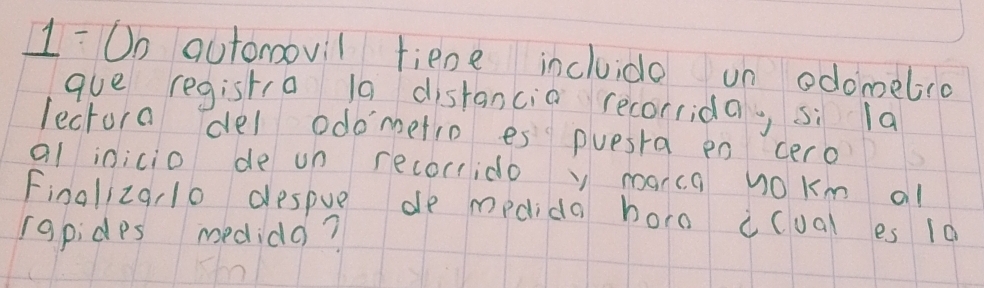 1 - Un automovil tiene incluido un odometro
que registra la distancia recorrida, si la
lectura del odómetro es puesta en cero
al inicio de un recorrido y marca 40 Km al
Finalizarlo despue de medida hora ¿cual es la
rapides medida?
Km